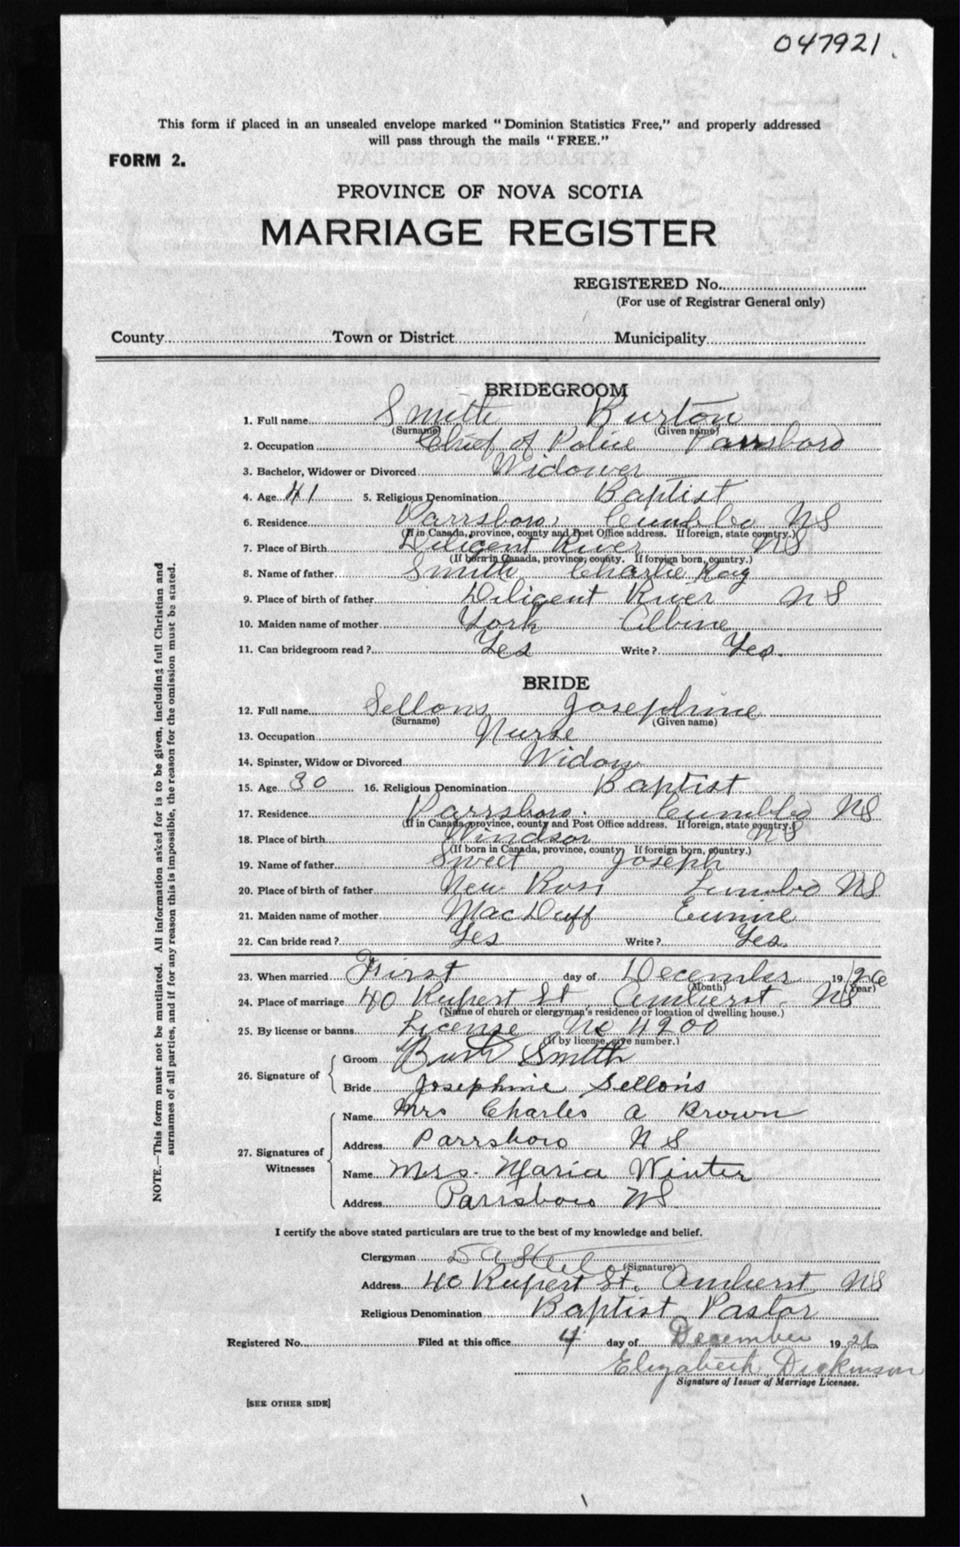 047921.
This form if placed in an unsealed envelope marked "Dominion Statistics Free," and properly addressed
will pass through the mails "FREE."
FORM 2.
PROVINCE OF NOVA SCOTIA
MARRIAGE REGISTER
REGISTERED No.
(For use of Registrar General only)
County Town or District Municipality
BRIDEGROOM
1. Full name Smith Burton
(Surname) (Given name)
2. Occupation Chief of Police Parrsboro
3. Bachelor, Widower or Divorced Widower
4. Age 41 5. Religious Denomination Baptist
6. Residence Parrsboro, Cumb Co NS
(If in Canada, province, county and Post Office address. If foreign, state country.)
7. Place of Birth Diligent River NS
(If born in Canada, province, county. If foreign born, country.)
8. Name of father Smith Charlie Roy
9. Place of birth of father Diligent River NS
10. Maiden name of mother York Albine
11. Can bridegroom read? Yes Write? Yes.
BRIDE
12. Full name Sellons Josephine
(Surname) (Given name)
13. Occupation Nurse
14. Spinster, Widow or Divorced Widow
15. Age 30 16. Religious Denomination Baptist
17. Residence Parrsboro. Cumb Co NS
(If in Canada, province, county and Post Office address. If foreign, state country.)
18. Place of birth Windsor NS
(If born in Canada, province, county. If foreign born, country.)
19. Name of father Sweet Joseph
20. Place of birth of father New Ross Lunb Co NS
21. Maiden name of mother MacDuff Eunice
22. Can bride read? Yes Write? Yes.
23. When married First day of December 1926
(Month) (Year)
24. Place of marriage 40 Rupert St Amherst. NS
(Name of church or clergyman's residence or location of dwelling house.)
25. By license or banns License No 4900
(If by license, give number.)
26. Signature of Groom Burt Smith
Bride Josephine Sellons
27. Signatures of Witnesses Name Mrs Charles A Brown
Address Parrsboro N S
Name Mrs. Maria Winter
Address Parrsboro NS
I certify the above stated particulars are true to the best of my knowledge and belief.
Clergyman D A Steele
(Signature)
Address 40 Rupert St. Amherst NS
Religious Denomination Baptist Pastor
Registered No. Filed at this office 4 day of December 1926
Elizabeth Dickinson
Signature of Issuer of Marriage Licenses.
[SEE OTHER SIDE]
NOTE.—This form must not be mutilated. All information asked for is to be given, including full Christian and
surnames of all parties, and if for any reason this is impossible, the reason for the omission must be stated.